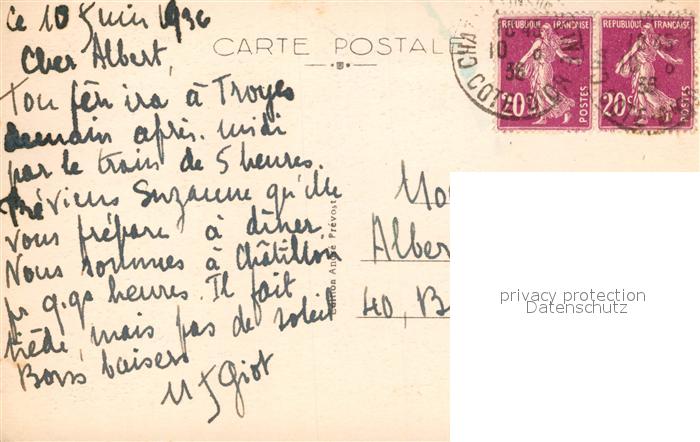 Le 10 Juin 1936
Cher Albert,
Ton père ira à Troyes
demain après-midi
par le train de 5 heures.
Préviens Suzanne qu'elle
vous prépare à dîner.
Nous sommes à Châtillon
pr q.qs heures. Il fait
tiède, mais pas de soleil
Bons baisers
Giot
CARTE POSTALE
Edition André Prévost
REPUBLIQUE FRANÇAISE
20c
POSTES
REPUBLIQUE FRANÇAISE
20c
POSTES
CHA
10 6
36
COTE
Albe
40, B
privacy protection
Datenschutz